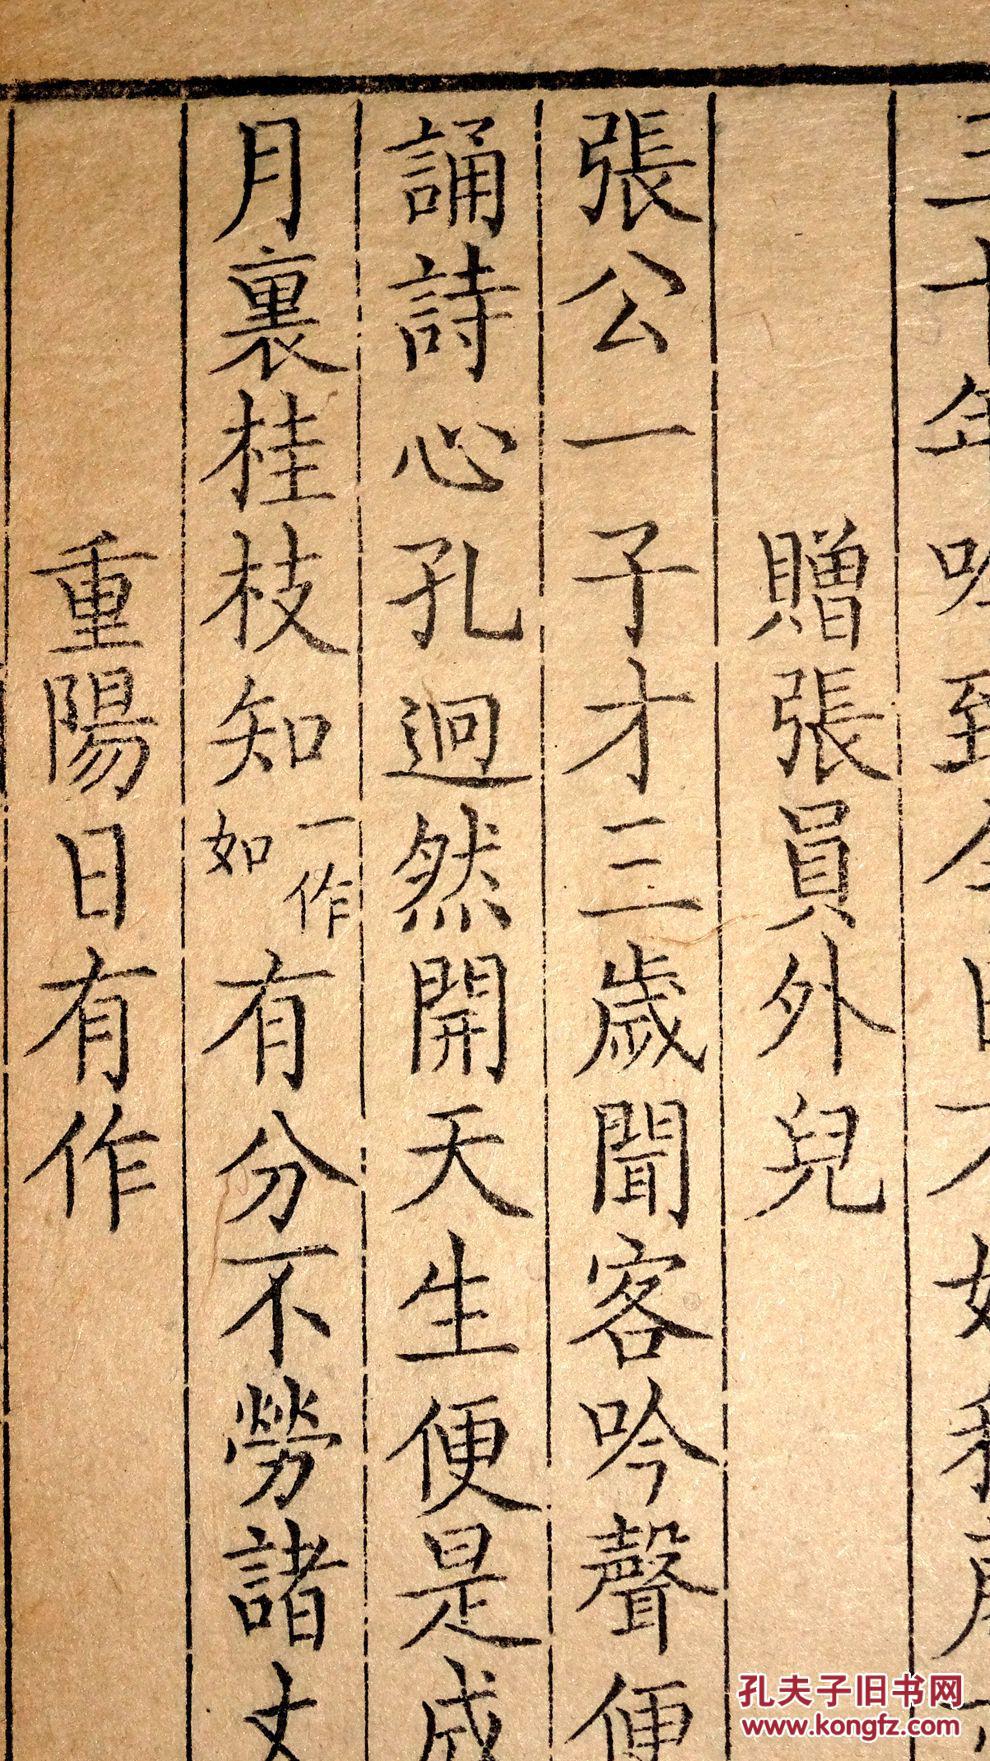 三十年吟到今日不
贈張員外兒
張公一子才三歲聞客吟聲便
誦詩心孔迥然開天生便是成
月裏桂枝知一作如有分不勞諸丈
重陽日有作
孔夫子旧书网
www.kongfz.com